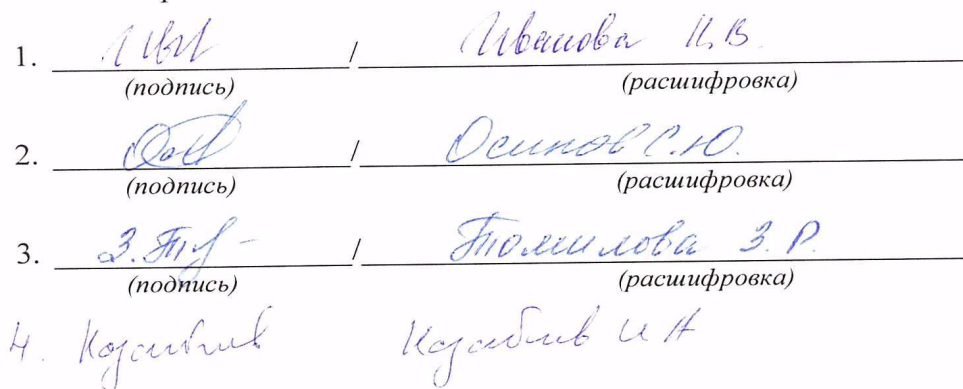 1. / Иванова И.В.
(подпись) (расшифровка)
2. / Осипов С.Ю.
(подпись) (расшифровка)
3. З.Т / Томилова З.Р.
(подпись) (расшифровка)
4. И А